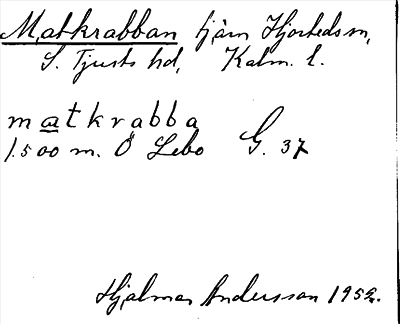 Matkrabban tjärn Hjorteds sn,
S. Tjusts hd, Kalm. l.
matkrabba
1500 m. Ö Lebo G. 37
Hjalmar Andersson 1952.